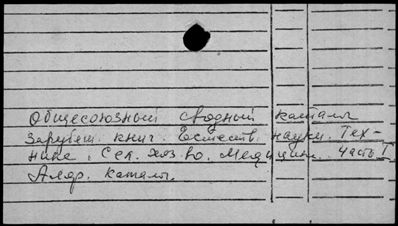 Общесоюзный сводный каталог
Заруbеж. книг. Естеств. науки. Тех-
ника. Сел. хоз-во. Медицин. Часть I
Алф. каталог.